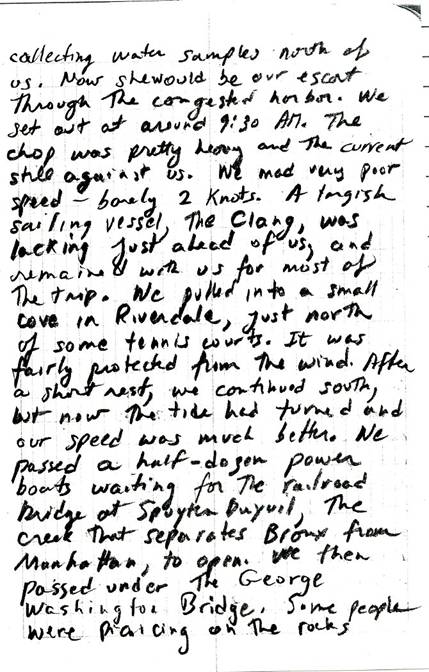 collecting water samples north of
us. Now she would be our escort
through The congested harbor. We
set out at around 9:30 AM. The
chop was pretty heavy and The current
still against us. We mad very poor
speed - barely 2 knots. A largish
sailing vessel, The Clang, was
tacking just ahead of us, and
remained with us for most of
The trip. We pulled into a small
cove in Riverdale, just north
of some tennis courts. It was
fairly protected from The wind. After
a short rest, we continued south,
but now The tide had turned and
our speed was much better. We
passed a half-dozen power
boats waiting for The railroad
bridge at Spuyten Duyvil, The
creek That separates Bronx from
Manhattan, to open. We Then
passed under The George
Washington Bridge. Some people
were picnicing on The rocks